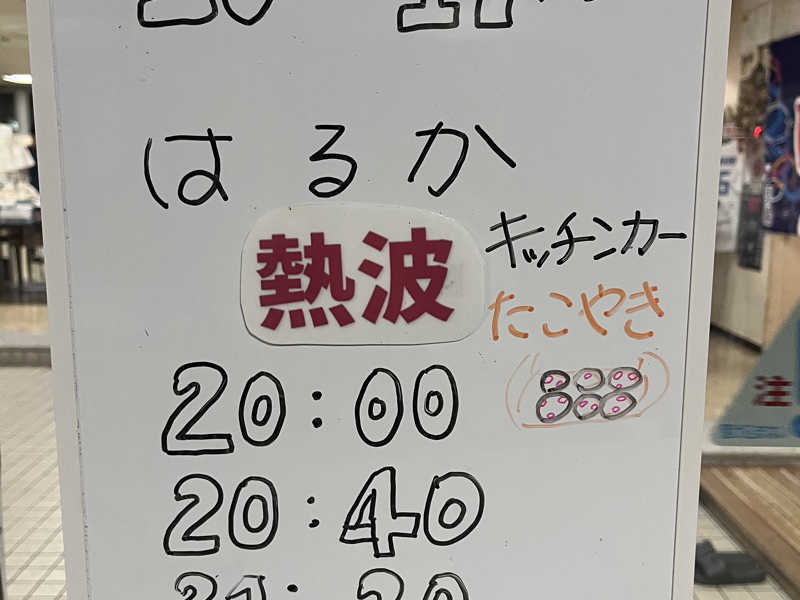 はるか
熱波
キッチンカー
たこやき
20:00
20:40
注